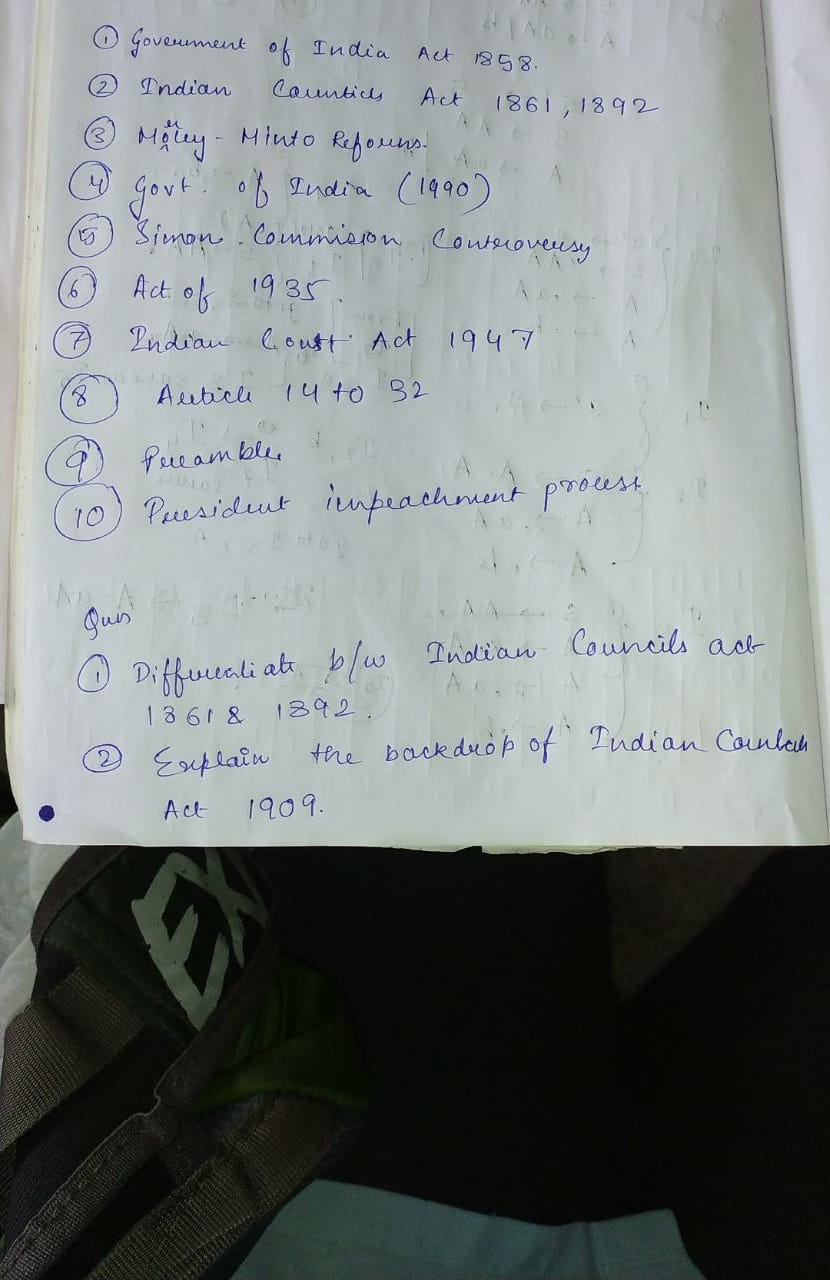 ① Government of India Act 1858.
② Indian Councils Act 1861, 1892
③ Morley - Minto Reforms.
④ Govt. of India (1990)
⑤ Simon Commision Controversy
⑥ Act of 1935.
⑦ Indian Const Act 1947
⑧ Article 14 to 32
⑨ Preamble
⑩ President impeachment process
Ques
① Differentiate b/w Indian Councils act
1861 & 1892.
② Explain the backdrop of Indian
Act 1909.
EX